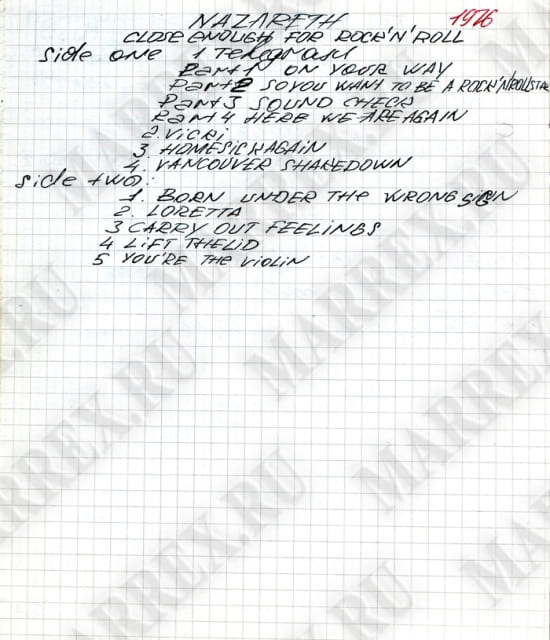 NAZARETH 1976
CLOSE ENOUGH FOR ROCK'N'ROLL
side one 1 Telegram
Part 1 ON YOUR WAY
Part 2 SO YOU WANT TO BE A ROCK'N'ROLL STAR
Part 3 SOUND CHECK
Part 4 HERE WE ARE AGAIN
2. VICKI
3 HOMESICK AGAIN
4. VANCOUVER SHAKEDOWN
side two:
1. BORN UNDER THE WRONG SIGN
2. LORETTA
3 CARRY OUT FEELINGS
4 LIFT THE LID
5 YOU'RE THE VIOLIN
MARREX.RU
MARREX.RU
MARREX.RU
MARREX.RU
MARREX.RU
MARREX.RU